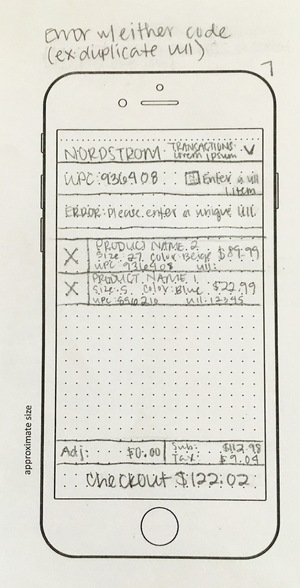 Error w/either code
(ex: duplicate UII)
7
NORDSTROM
TRANSACTIONS
Lorem Ipsum
UPC: 936408
Enter a UII
1 item
ERROR: Please enter a unique UII.
X
PRODUCT NAME 2
Size: 27 Color: Beige $89.99
UPC: 936408 UII:
X
PRODUCT NAME 1
Size: S Color: Blue $22.99
UPC: 556210 UII: 12345
Adj: $0.00
Sub: $112.98
Tax: $9.04
Checkout $122.02
approximate size